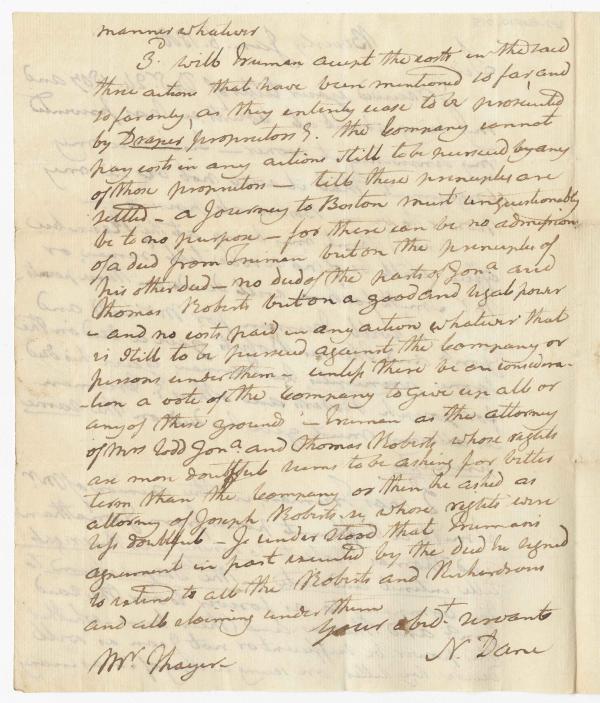 manner whatever
3d. will Truman accept the costs in the said
three actions that have been mentioned so far, and
so far only, as they entirely cease to be prosecuted
by Draper, proprietors &. the Company cannot
pay costs in any actions still to be pursued by any
of those proprietors — till these principles are
settled — a Journey to Boston must unquestionably
be to no purpose — for there can be no admission
of a deed from Truman but on the principles of
his other deed — no deed of the parts of Jona. and
Thomas Roberts but on a good and legal power
- and no costs paid in any action whatever that
is still to be pursued against the Company or
persons under them — unless there be on considera-
-tion a vote of the Company to give up all or
any of these ground — Truman as the attorney
of Mrs Todd Jona. and Thomas Roberts whose rights
are more doubtfull seems to be asking for better
term than the Company or then he asked as
attorney of Joseph Roberts whose rights were
less doubtful — Je understood that Truman's
agreement in part executed by the deed he signed
to extend to all the Roberts and Richardsons
and all claiming under them
your obedt. servants
Mr. Thayer N. Dane